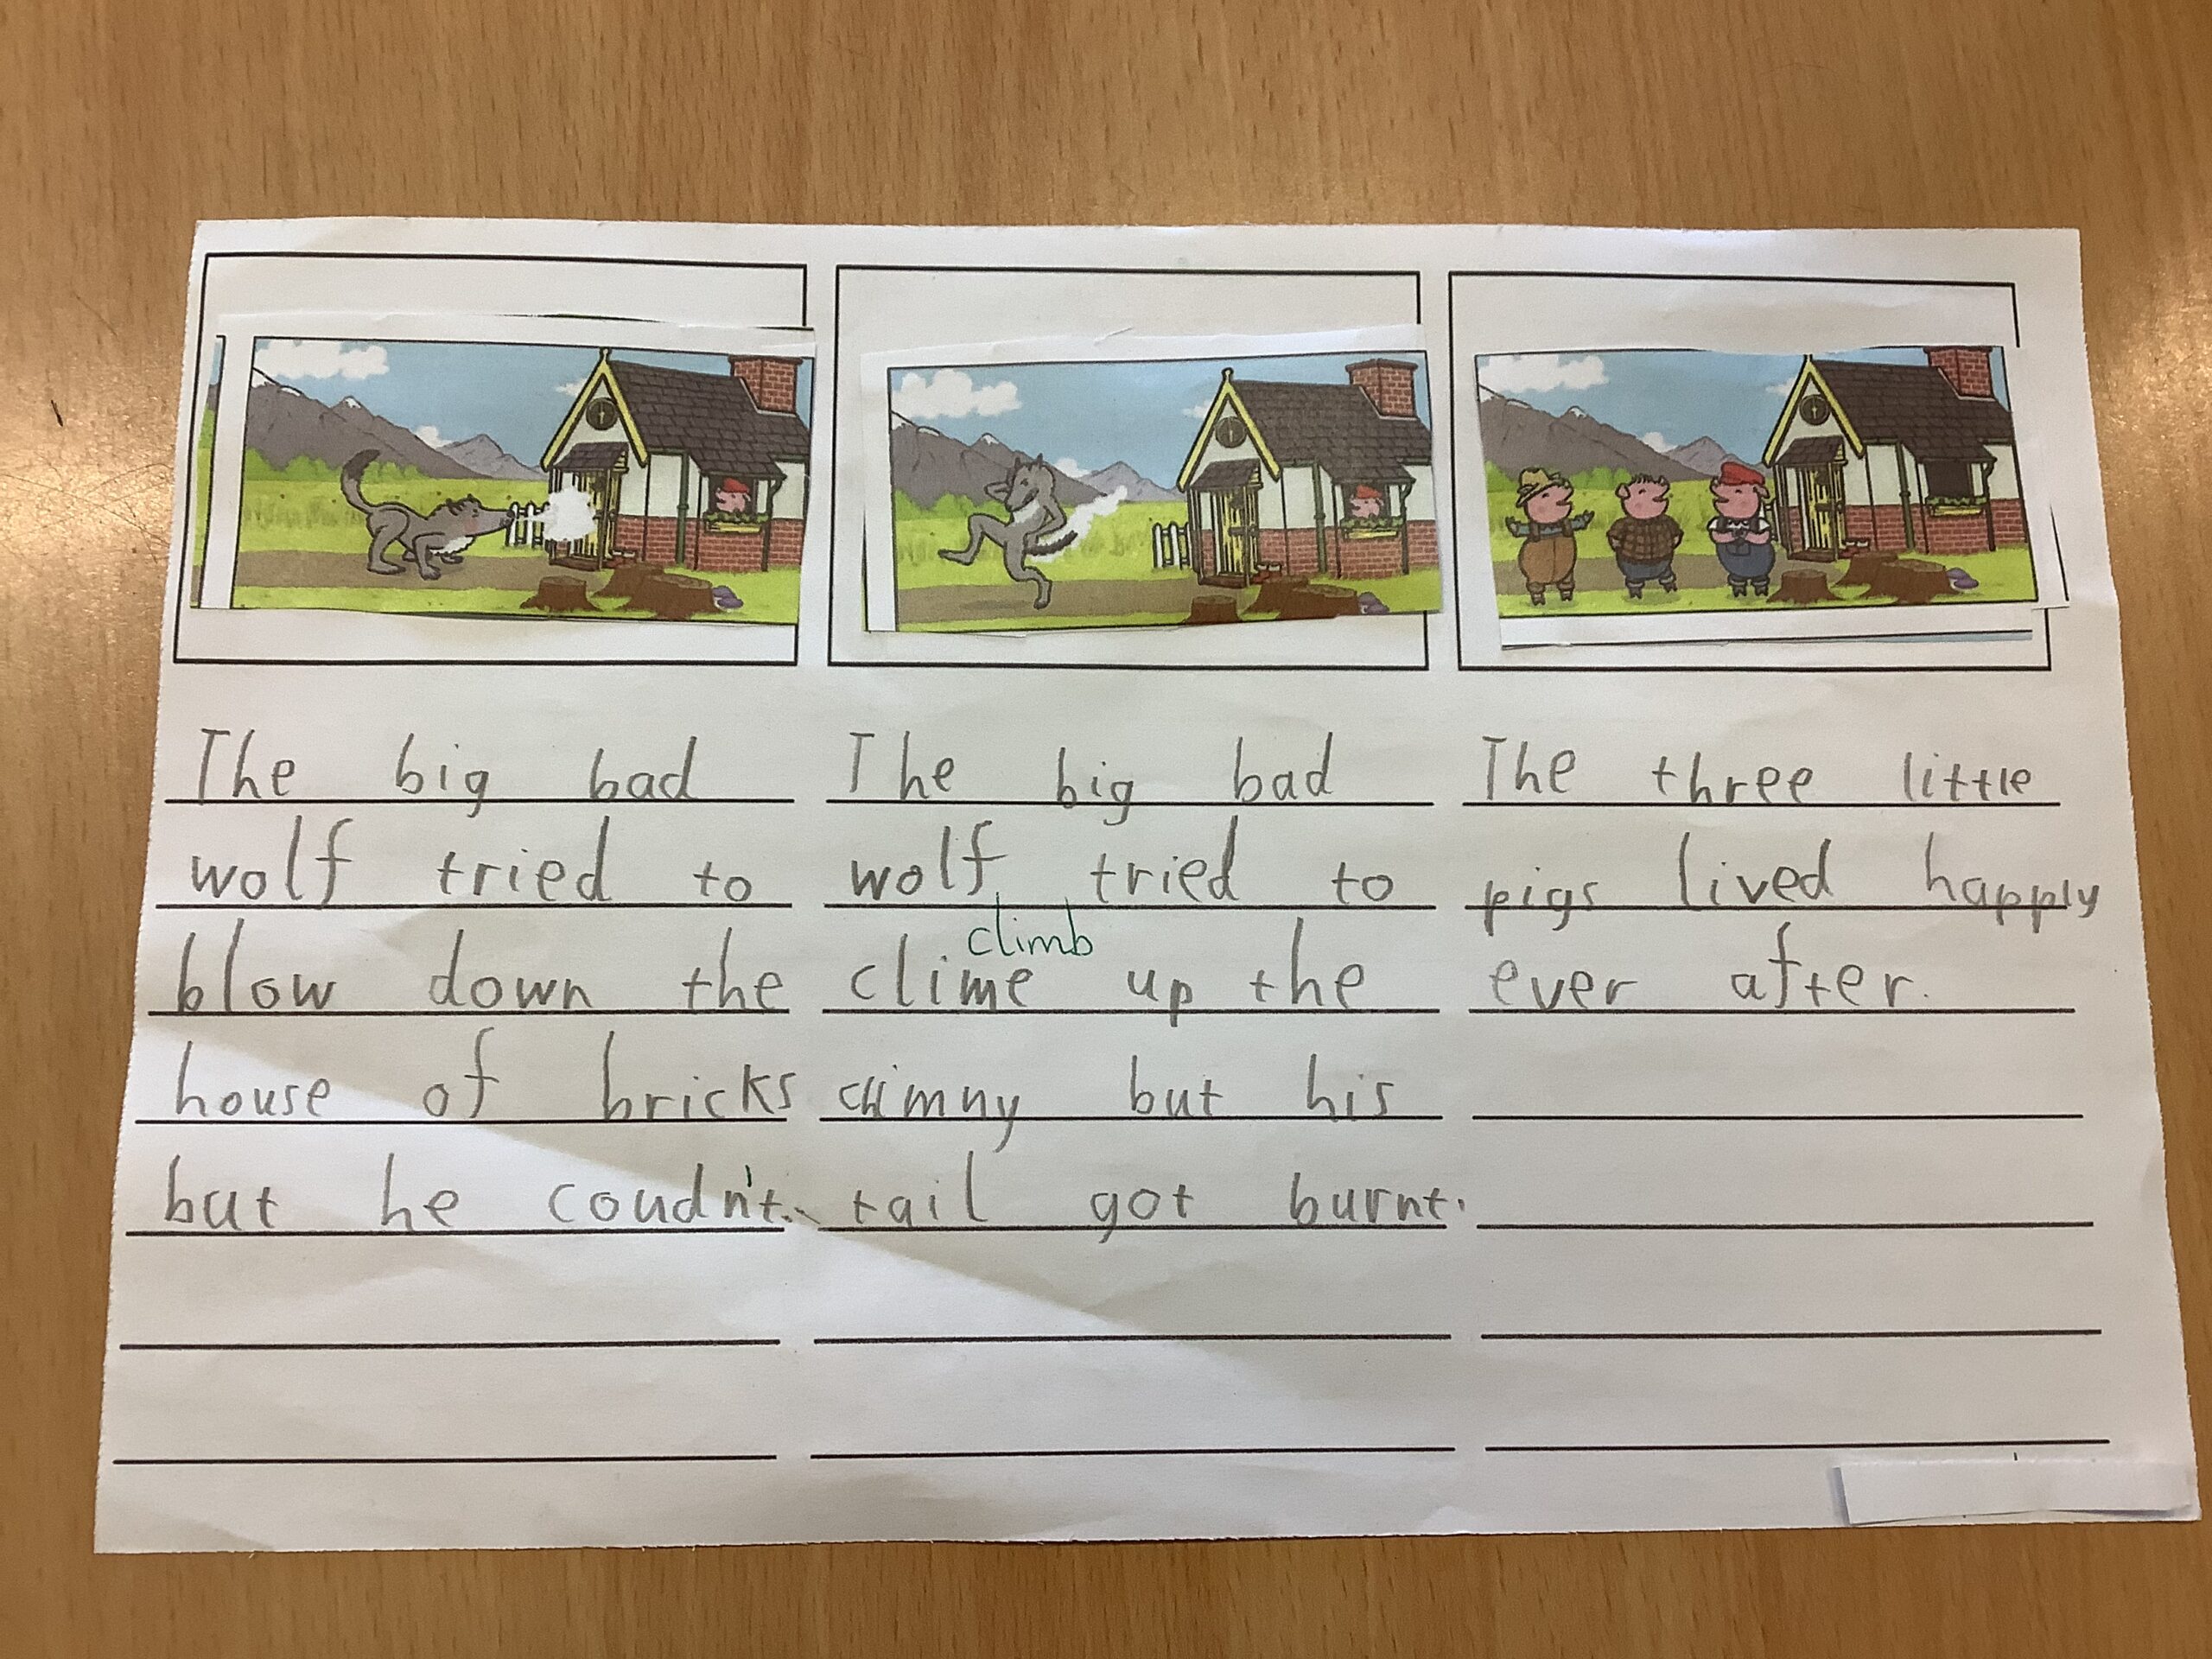 The big bad
wolf tried to
blow down the
house of bricks
but he coudn't.
The big bad
wolf tried to
climb
clime up the
chimny but his
tail got burnt.
The three little
pigs lived happly
ever after.